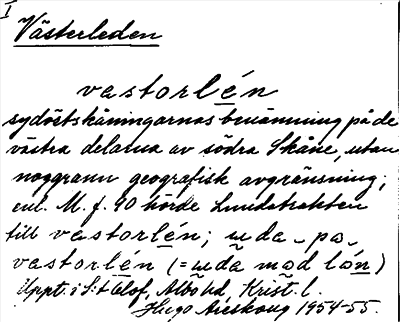 I
Västerleden
vastorlén
sydöstskåningarnas benämning på de
västra delarna av södra Skåne, utan
noggrann geografisk avgränsning;
enl. M. f. 90 hörde Lundatrakten
till vastorlén; uda-pa-
vastorlén (= uda mod lón)
Uppt. i S:t Olof, Albo hd, Krist. l.
Hugo Areskoug 1954-55.